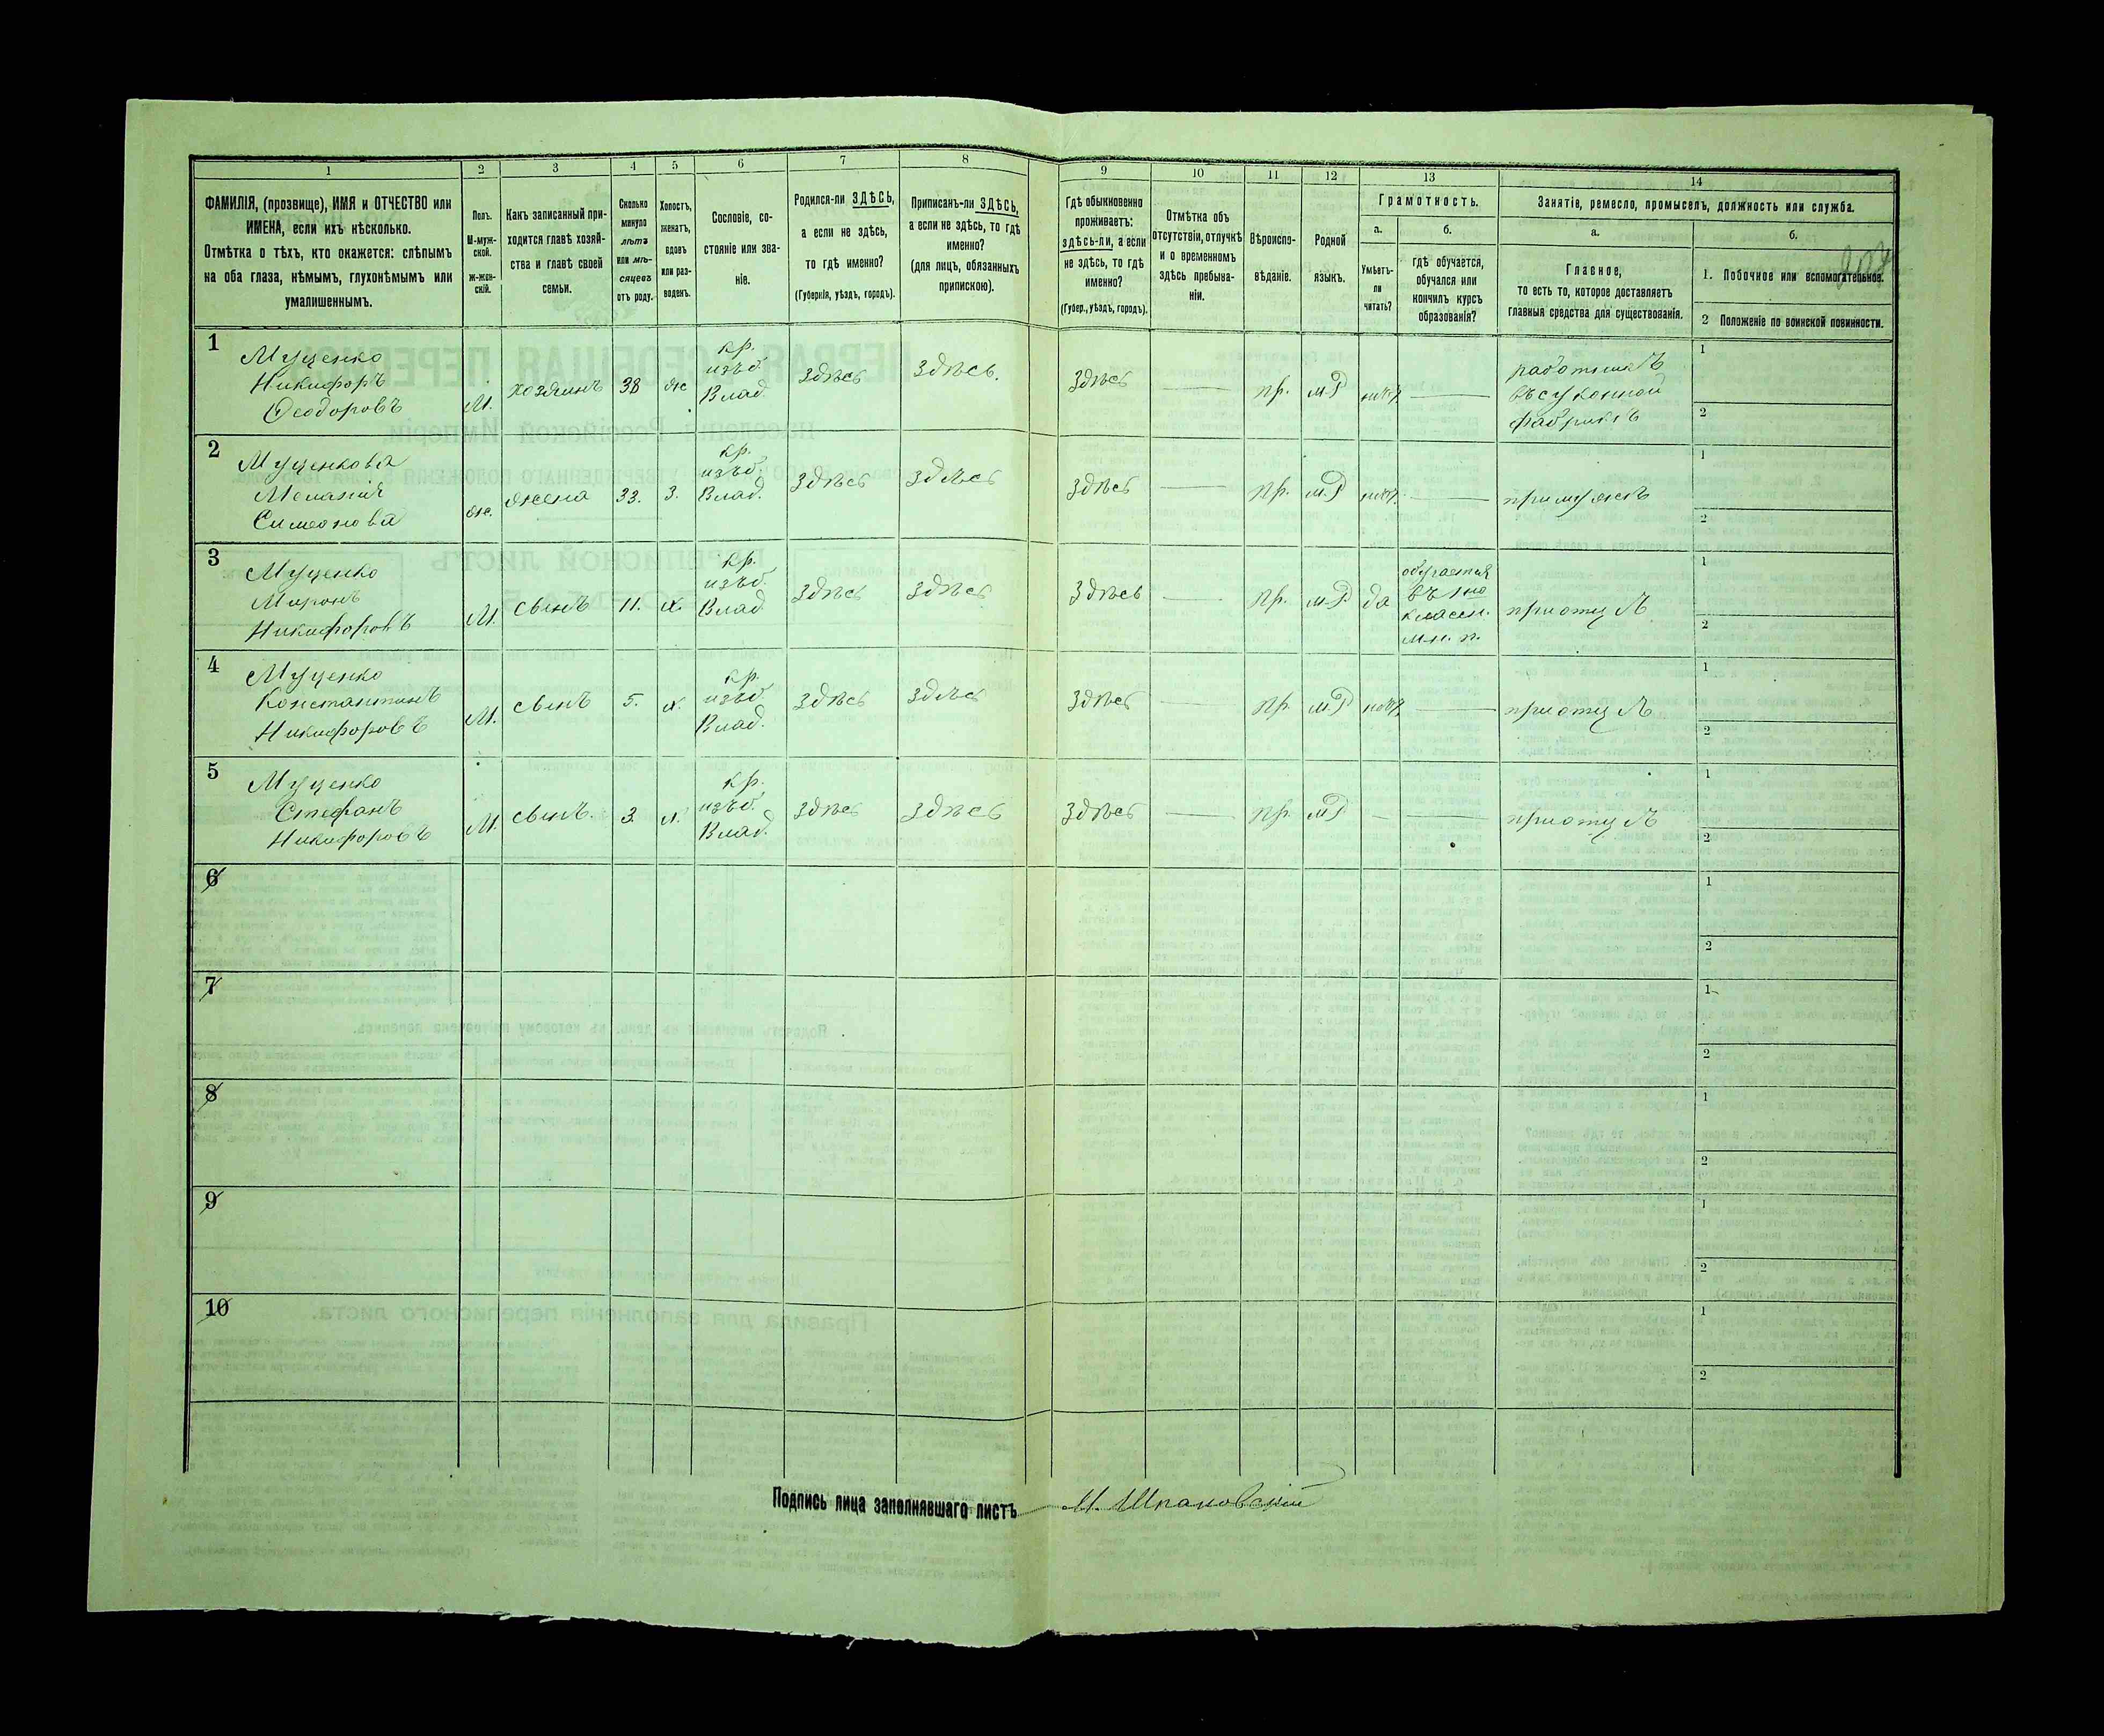 1 2 3 4 5 6 7 8 9 10 11 12 13 14
ФАМИЛІЯ, (прозвище), ИМЯ и ОТЧЕСТВО или
ИМЕНА, если ихъ нѣсколько.
Отмѣтка о тѣхъ, кто окажется: слѣпымъ
на оба глаза, нѣмымъ, глухонѣмымъ или
умалишеннымъ.
Полъ.
М-муж-
ской.
Ж-жен-
скій.
Какъ записанный при-
ходится главѣ хозяй-
ства и главѣ своей
семьи.
Сколько
минуло
лѣтъ
или мѣ-
сяцевъ
отъ роду.
Холостъ,
женатъ,
вдовъ
или раз-
веденъ.
Сословіе, со-
стояніе или зва-
ніе.
Родился-ли ЗДѢСЬ,
а если не здѣсь,
то гдѣ именно?
(Губернія, уѣздъ, городъ).
Приписанъ-ли ЗДѢСЬ,
а если не здѣсь, то гдѣ
именно?
(для лицъ, обязанныхъ
припискою).
Гдѣ обыкновенно
проживаетъ:
здѣсь-ли, а если
не здѣсь, то гдѣ
именно?
(Губер., уѣздъ, городъ).
Отмѣтка объ
отсутствіи, отлучкѣ
и о временномъ
здѣсь пребыва-
ніи.
Вѣроиспо-
вѣданіе.
Родной
языкъ.
Грамотность.
а.
Умѣетъ-
ли
читать?
б.
гдѣ обучается,
обучался или
кончилъ курсъ
образованія?
Занятіе, ремесло, промыселъ, должность или служба.
а.
Главное,
то есть то, которое доставляетъ
главныя средства для существованія.
б.
1. Побочное или вспомогательное.
2 Положеніе по воинской повинности.
1
Муценко
Никифоръ
Ѳеодоровъ
М.
хозяинъ
38
ж
кр.
изъ б.
Влад.
здѣсь
здѣсь.
здѣсь
пр.
м.Р
нѣтъ
работникъ
въ суконной
фабрикѣ
1
2
2
Муценкова
Меланія
Симеонова
ж.
жена
33.
з.
кр.
изъ б.
Влад.
здѣсь
здѣсь
здѣсь
пр.
м.Р
нѣтъ
при мужѣ
1
2
3
Муценко
Миронъ
Никифоровъ
М.
сынъ
11.
х.
кр.
изъ б.
Влад.
здѣсь
здѣсь
здѣсь
пр.
м.Р.
да
обучается
въ 1но
классн.
м.н.п.
при отцѣ
1
2
4
Муценко
Константинъ
Никифоровъ
М.
сынъ
5.
х.
кр.
изъ б.
Влад.
здѣсь
здѣсь
здѣсь
пр.
м.Р
нѣтъ
при отцѣ
1
2
5
Муценко
Стефанъ
Никифоровъ
М.
сынъ.
3.
х.
кр.
изъ б.
Влад.
здѣсь
здѣсь
здѣсь
пр.
м.Р.
при отцѣ
1
2
6
1
2
7
1
2
8
1
2
9
1
2
10
1
2
Подпись лица заполнявшаго листъ И. Шпаковскій